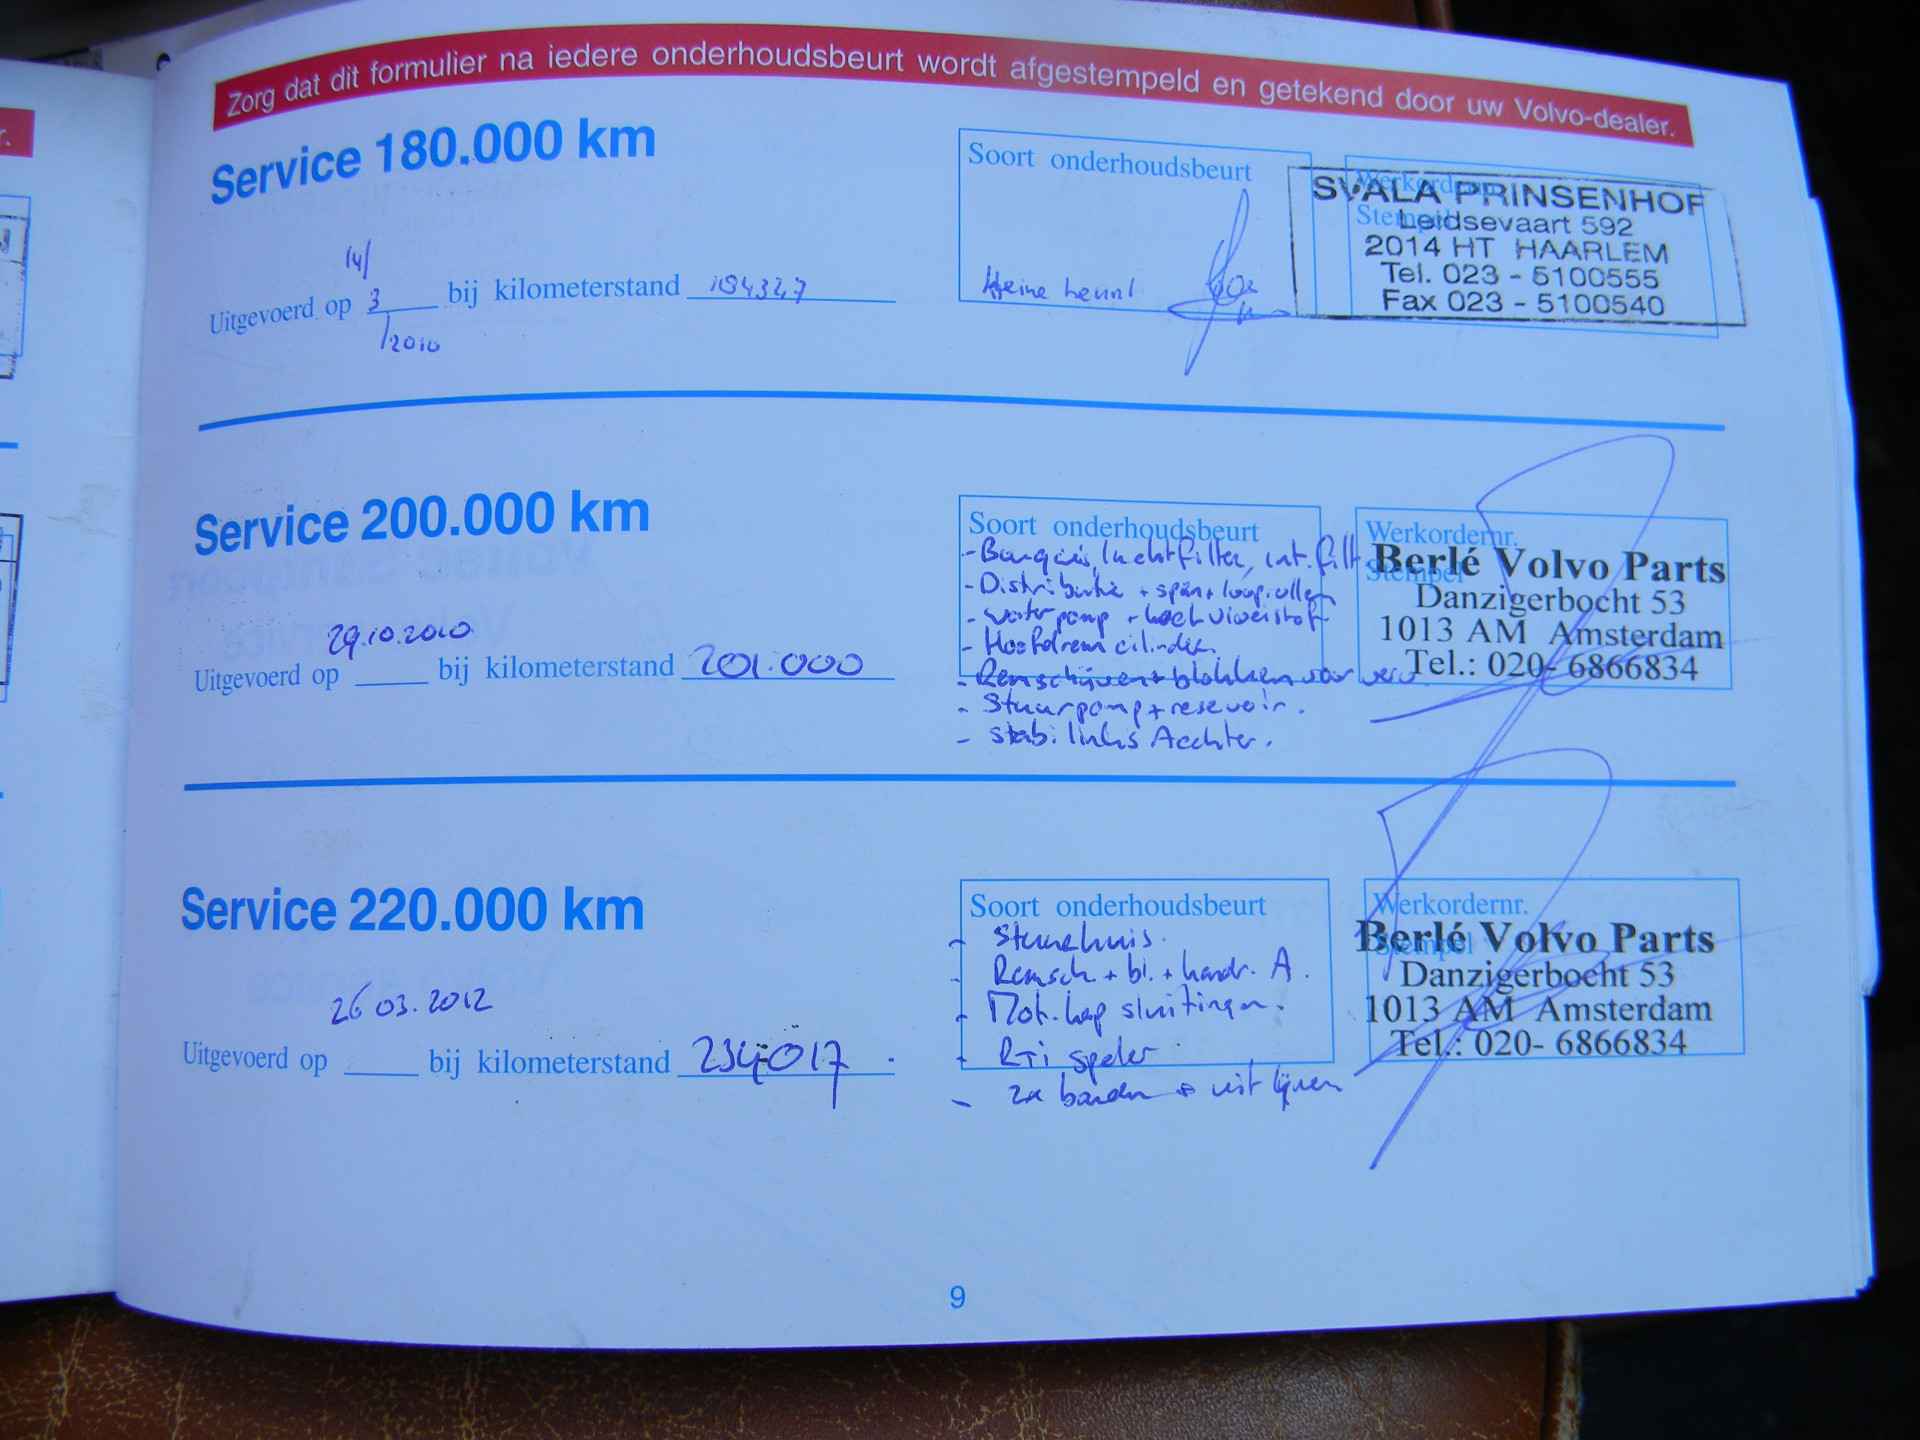 Zorg dat dit formulier na iedere onderhoudsbeurt wordt afgestempeld en getekend door uw Volvo-dealer.
r.
Service 180.000 km
Soort onderhoudsbeurt
Werkordernr.
Stempel
SVALA PRINSENHOF
Leidsevaart 592
2014 HT HAARLEM
Tel. 023 - 5100555
Fax 023 - 5100540
14/
Uitgevoerd op 3 bij kilometerstand 184327
/2010
kleine beurt
Service 200.000 km
Soort onderhoudsbeurt
- Bougies, luchtfilter, int. filt
- Distributie + span + looprollen
- waterpomp + koelvloeistof
- Hoofdrem cilinder
- Remschijven + blokken voor verv.
- Stuurpomp + resevoir.
- stabi links Aechter.
Werkordernr.
Stempel
Berlé Volvo Parts
Danzigerbocht 53
1013 AM Amsterdam
Tel.: 020- 6866834
29.10.2010
Uitgevoerd op bij kilometerstand 201.000
Service 220.000 km
Soort onderhoudsbeurt
- Stuurhuis.
- Remsch + bl. + handr. A.
- Mot. kap sluitingen.
- RTi speler
- 2x banden + uit lijnen
Werkordernr.
Stempel
Berlé Volvo Parts
Danzigerbocht 53
1013 AM Amsterdam
Tel.: 020- 6866834
26 03. 2012
Uitgevoerd op bij kilometerstand 234017
9